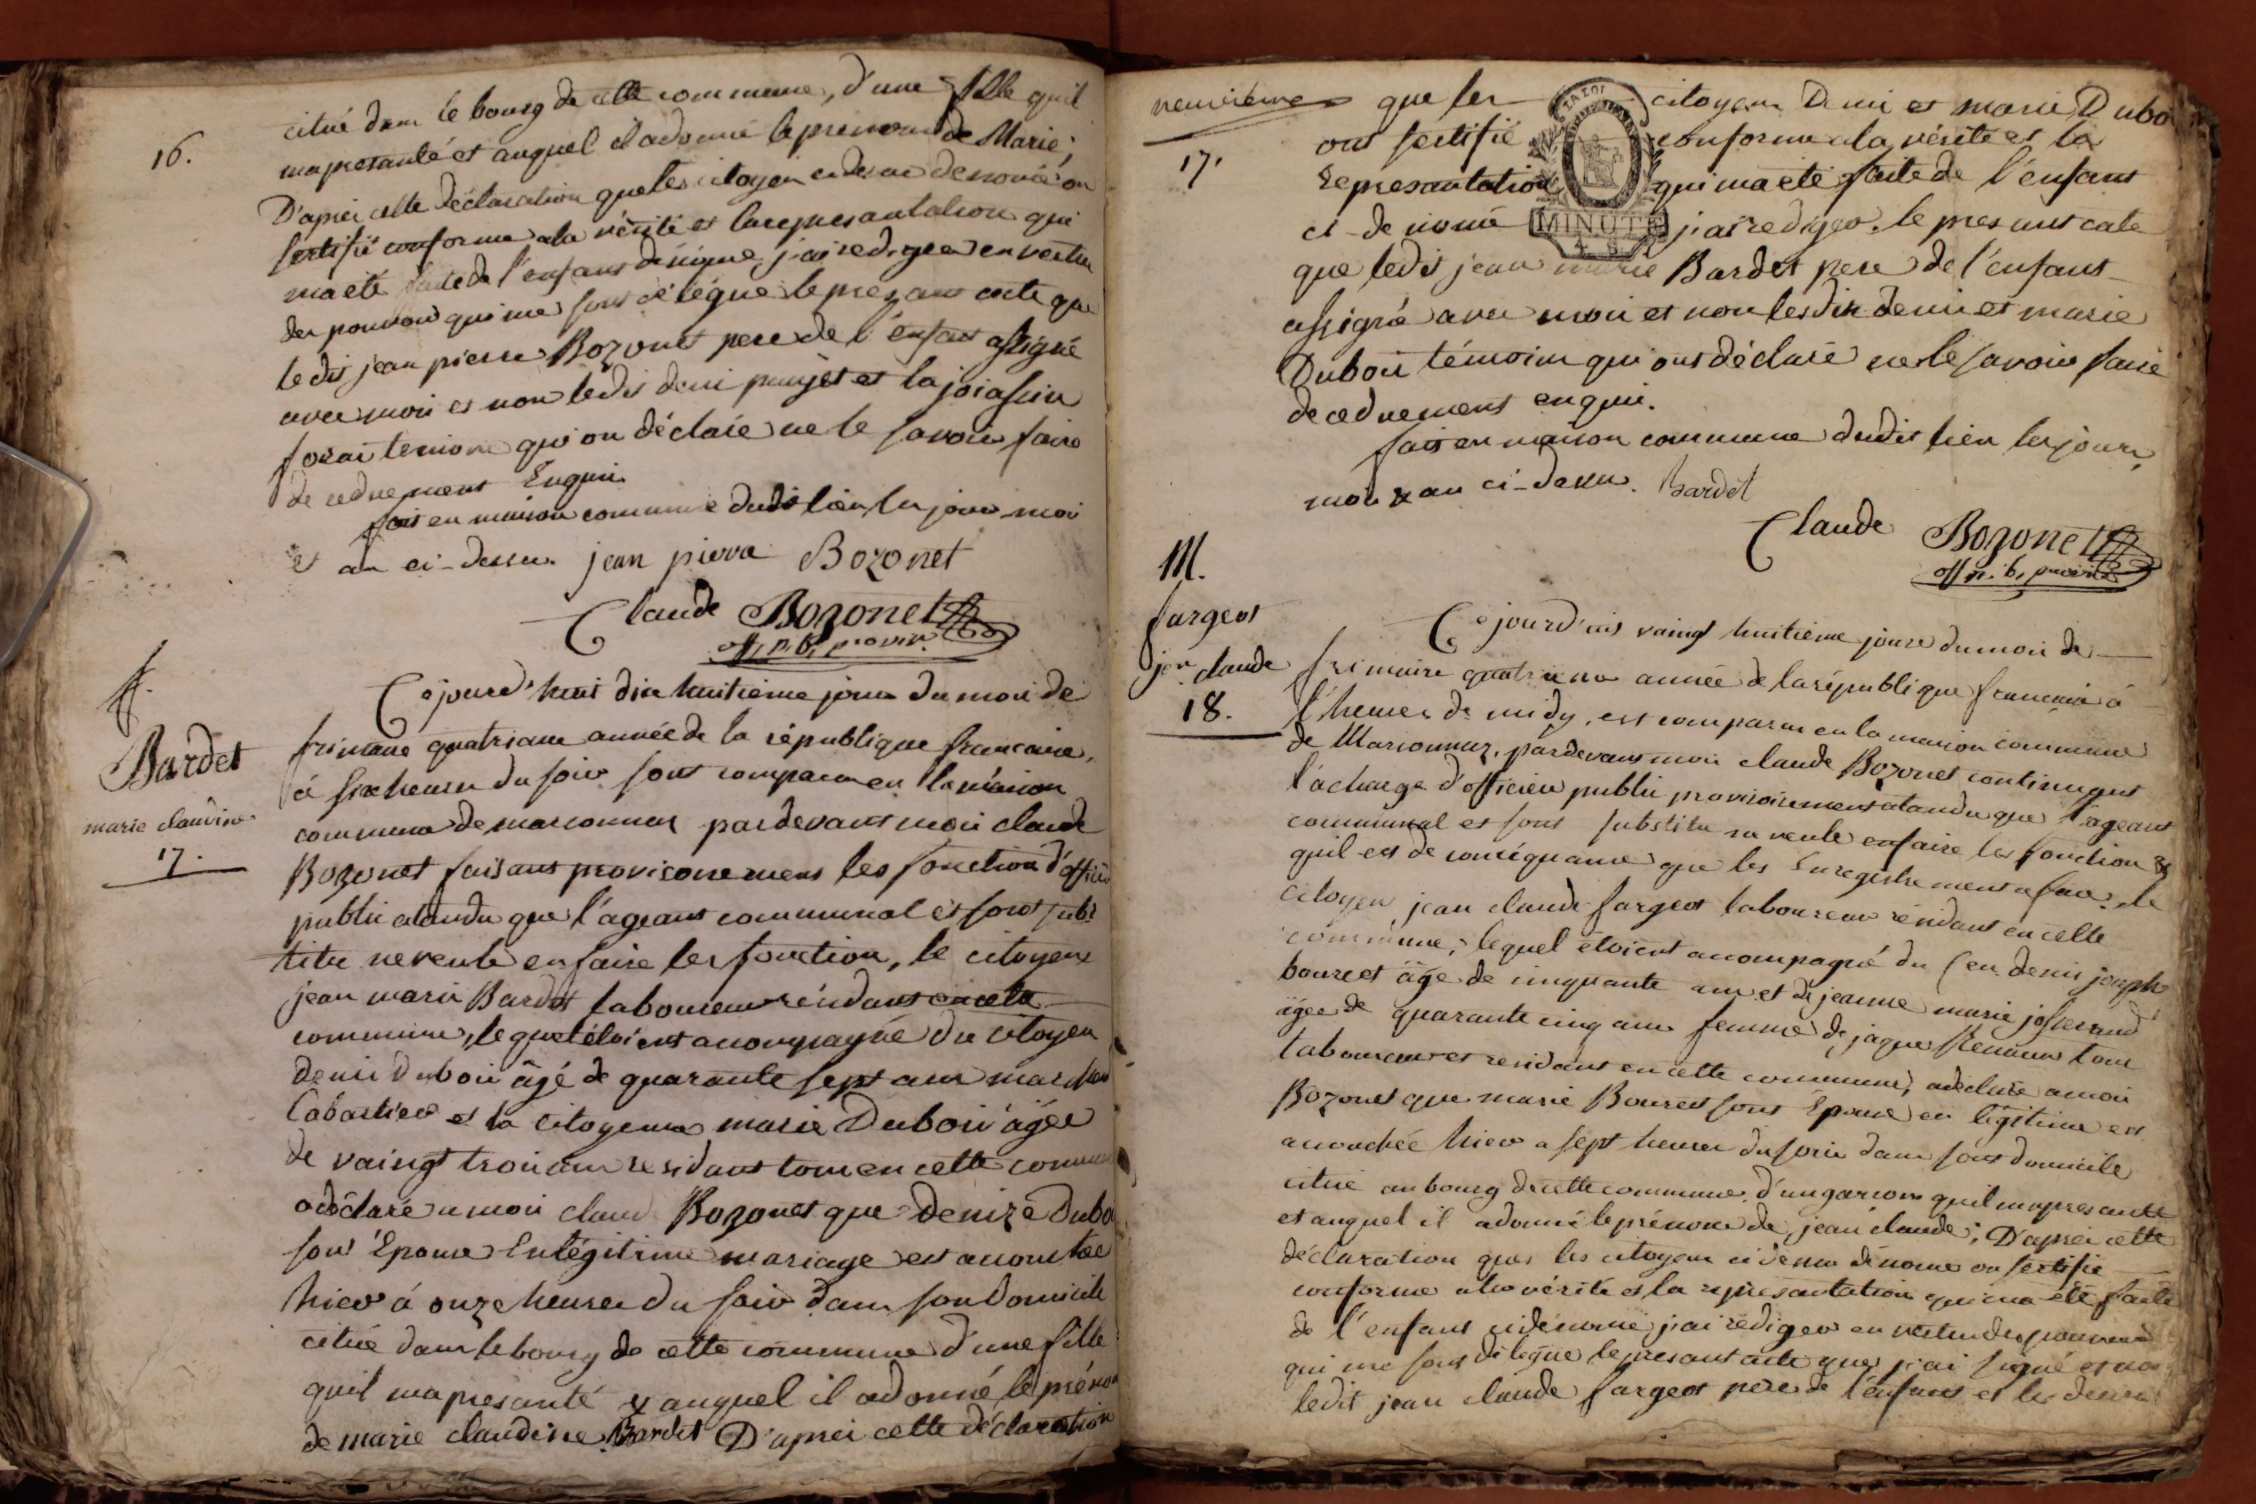 16.
citué dans le bourg de cette commune, d'une fille quil
mapresanté et auquel il adonné le prenom de Marie;
D'aprei cette déclaration que les citoyen cidesu denomé on
sertifié conforme ala vérité et la representation qui
ma eté faite de l'enfant désigné, j'ai rediger en vertu
des pouvoir qui me sont délégué le presant acte que
ledit jean pierre Bozonet pere de l'enfant assigné
avec moi et non ledit deni
forai temions qui on déclaré ne le savoir faire
de cednement Enqui.
fait en maison commune dudit lieu les jour moi
et an ci-dessu. jean pierra Bozonet
Claude Bozonet
off. p. b. provir.
f.
Bardet
marie claudine
17.
Cejourd'hui dix huitième jour du moi de
frimaire quatrieme année de la république francaise,
à six heure du soir sont comparu en la maison
commune de marsonnas pardevant moi claude
Bozonet faisant provisoirement les fonction d'officie
public atandu que l'ageant communal et sont subs
titu ne veule en faire les fonction, le citoyen
jean marie Bardet laboureur résidant en cette
commune, lequel étoient acompagné du citoyen
deni duboi âgé de quarante sept ans marchand
Cabartier et la citoyenne marie Duboi âgée
de vaingt troi ans residant tous en cette commune
adéclaré a moi claude Bozonet que denize Dubo
son Epouse En légitime mariage est acouchée
hier à onze heures du soir dans son Domicile
citué dans le bourg de cette commune d'une fille
quil mapresanté & auquel il adonné le préno
de marie claudine Bardet D'aprei cette déclaration
neuvième
17.
que les citoyens Deni et marie Duboi
ont sertifié conforme ala vérité et la
represantation qui ma eté faite de l'enfant
MINUTE
ci-denomé j'ai rediger le presant acte
que ledit jean marie Bardet pere de l'enfant
assigné avec moi et non lesdit deni et marie
Duboi témoins qui ont déclaré ne le savoir faire
de cednement enqui.
fait en maison commune dudit lieu les jours,
moi & an ci-dessu. Bardet
Claude Bozonet
off. p. b. provir.
M.
fargeot
jen claude
18.
Cejourd'ui vaingt huitième jours du moi de
frimaire quatrieme année de la république francaise à
l'heure de midy, est comparu en la maison commune
de Marsonnas, pardevant moi claude Bozonet continuant
la charge d'officier public provisoirement atandu que l'ageant
communal et sont substitu ne veule enfaire les fonction &
quil est de conséquance que les Enregistrement se fase, le
citoyen jean claude fargeot laboureur résidant en cette
commune, lequel étoient acompagné du Cen. deni joseph
bouret âgé de cinquante ans et de jeanne marie josserand
âgée de quarante cinq ans femme de jaque tous
laboureur et residant en cette commune, adéclaré amoi
Bozonet que marie Bouret sont Epouse en légitime est
acouchée hier a sept heures du soir dans sont domicile
citué au bourg de cette commune, d'un garson quil mapresanté
et auquel il adonné le prénom de jean claude; D'aprei cette
déclaration que les citoyen cidesu dénomé on sertifié
conforme ala vérité et la represantation qui ma été faite
de l'enfant cidénomé j'ai rédiger en vertu des pouvoir
qui me sont délégué le presant acte que j'ai signé et non
ledit jean claude fargeot pere de l'enfant et les